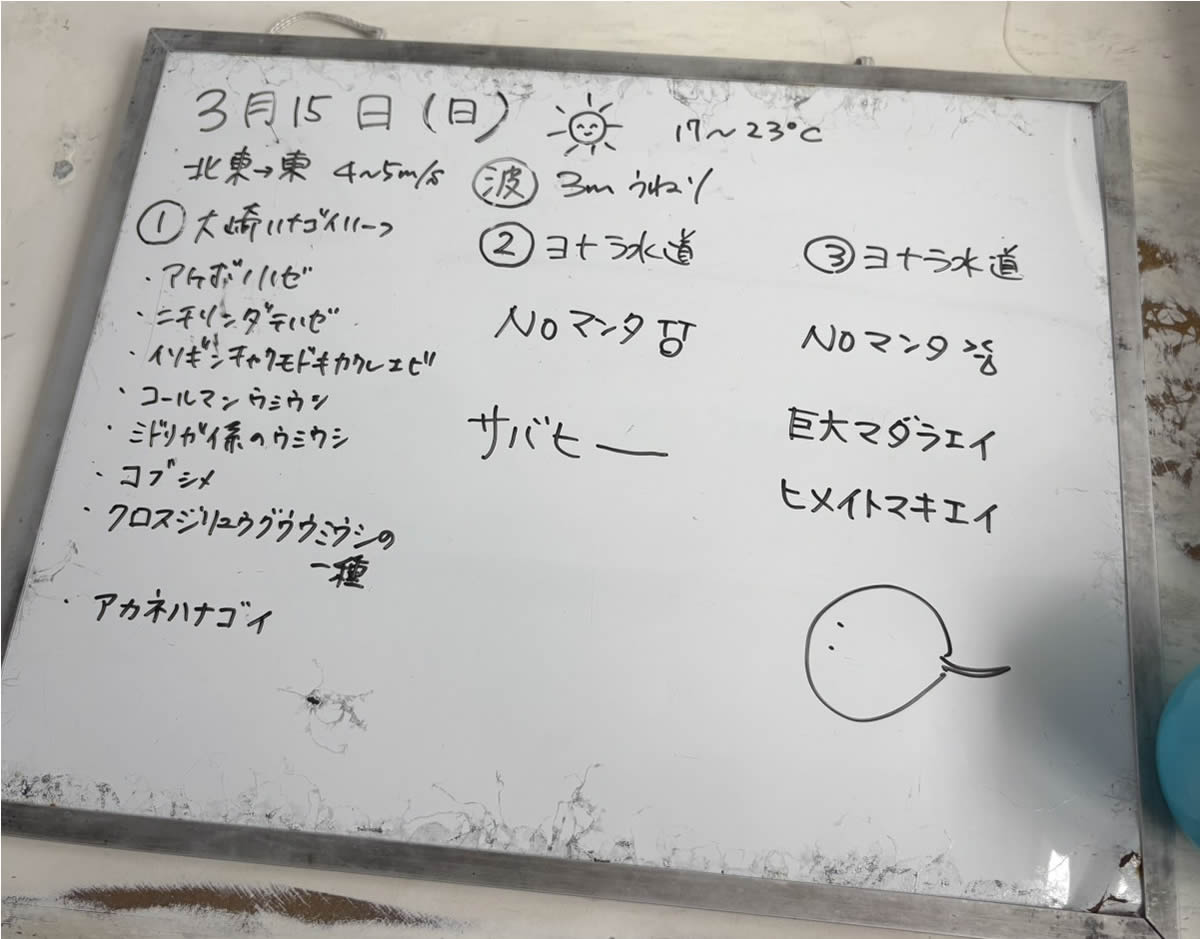 3月15日(日) 17～23℃
北東→東 4～5m/s 波 3mうねり
① 大崎ハナゴイリーフ
・アケボノハゼ
・ニチリンダテハゼ
・イソギンチャクモドキカクレエビ
・コールマンウミウシ
・ミドリガイ系のウミウシ
・コブシメ
・クロスジリュウグウウミウシの
一種
・アカネハナゴイ
② ヨナラ水道
NOマンタ
サバヒー
③ ヨナラ水道
NOマンタ
巨大マダラエイ
ヒメイトマキエイ